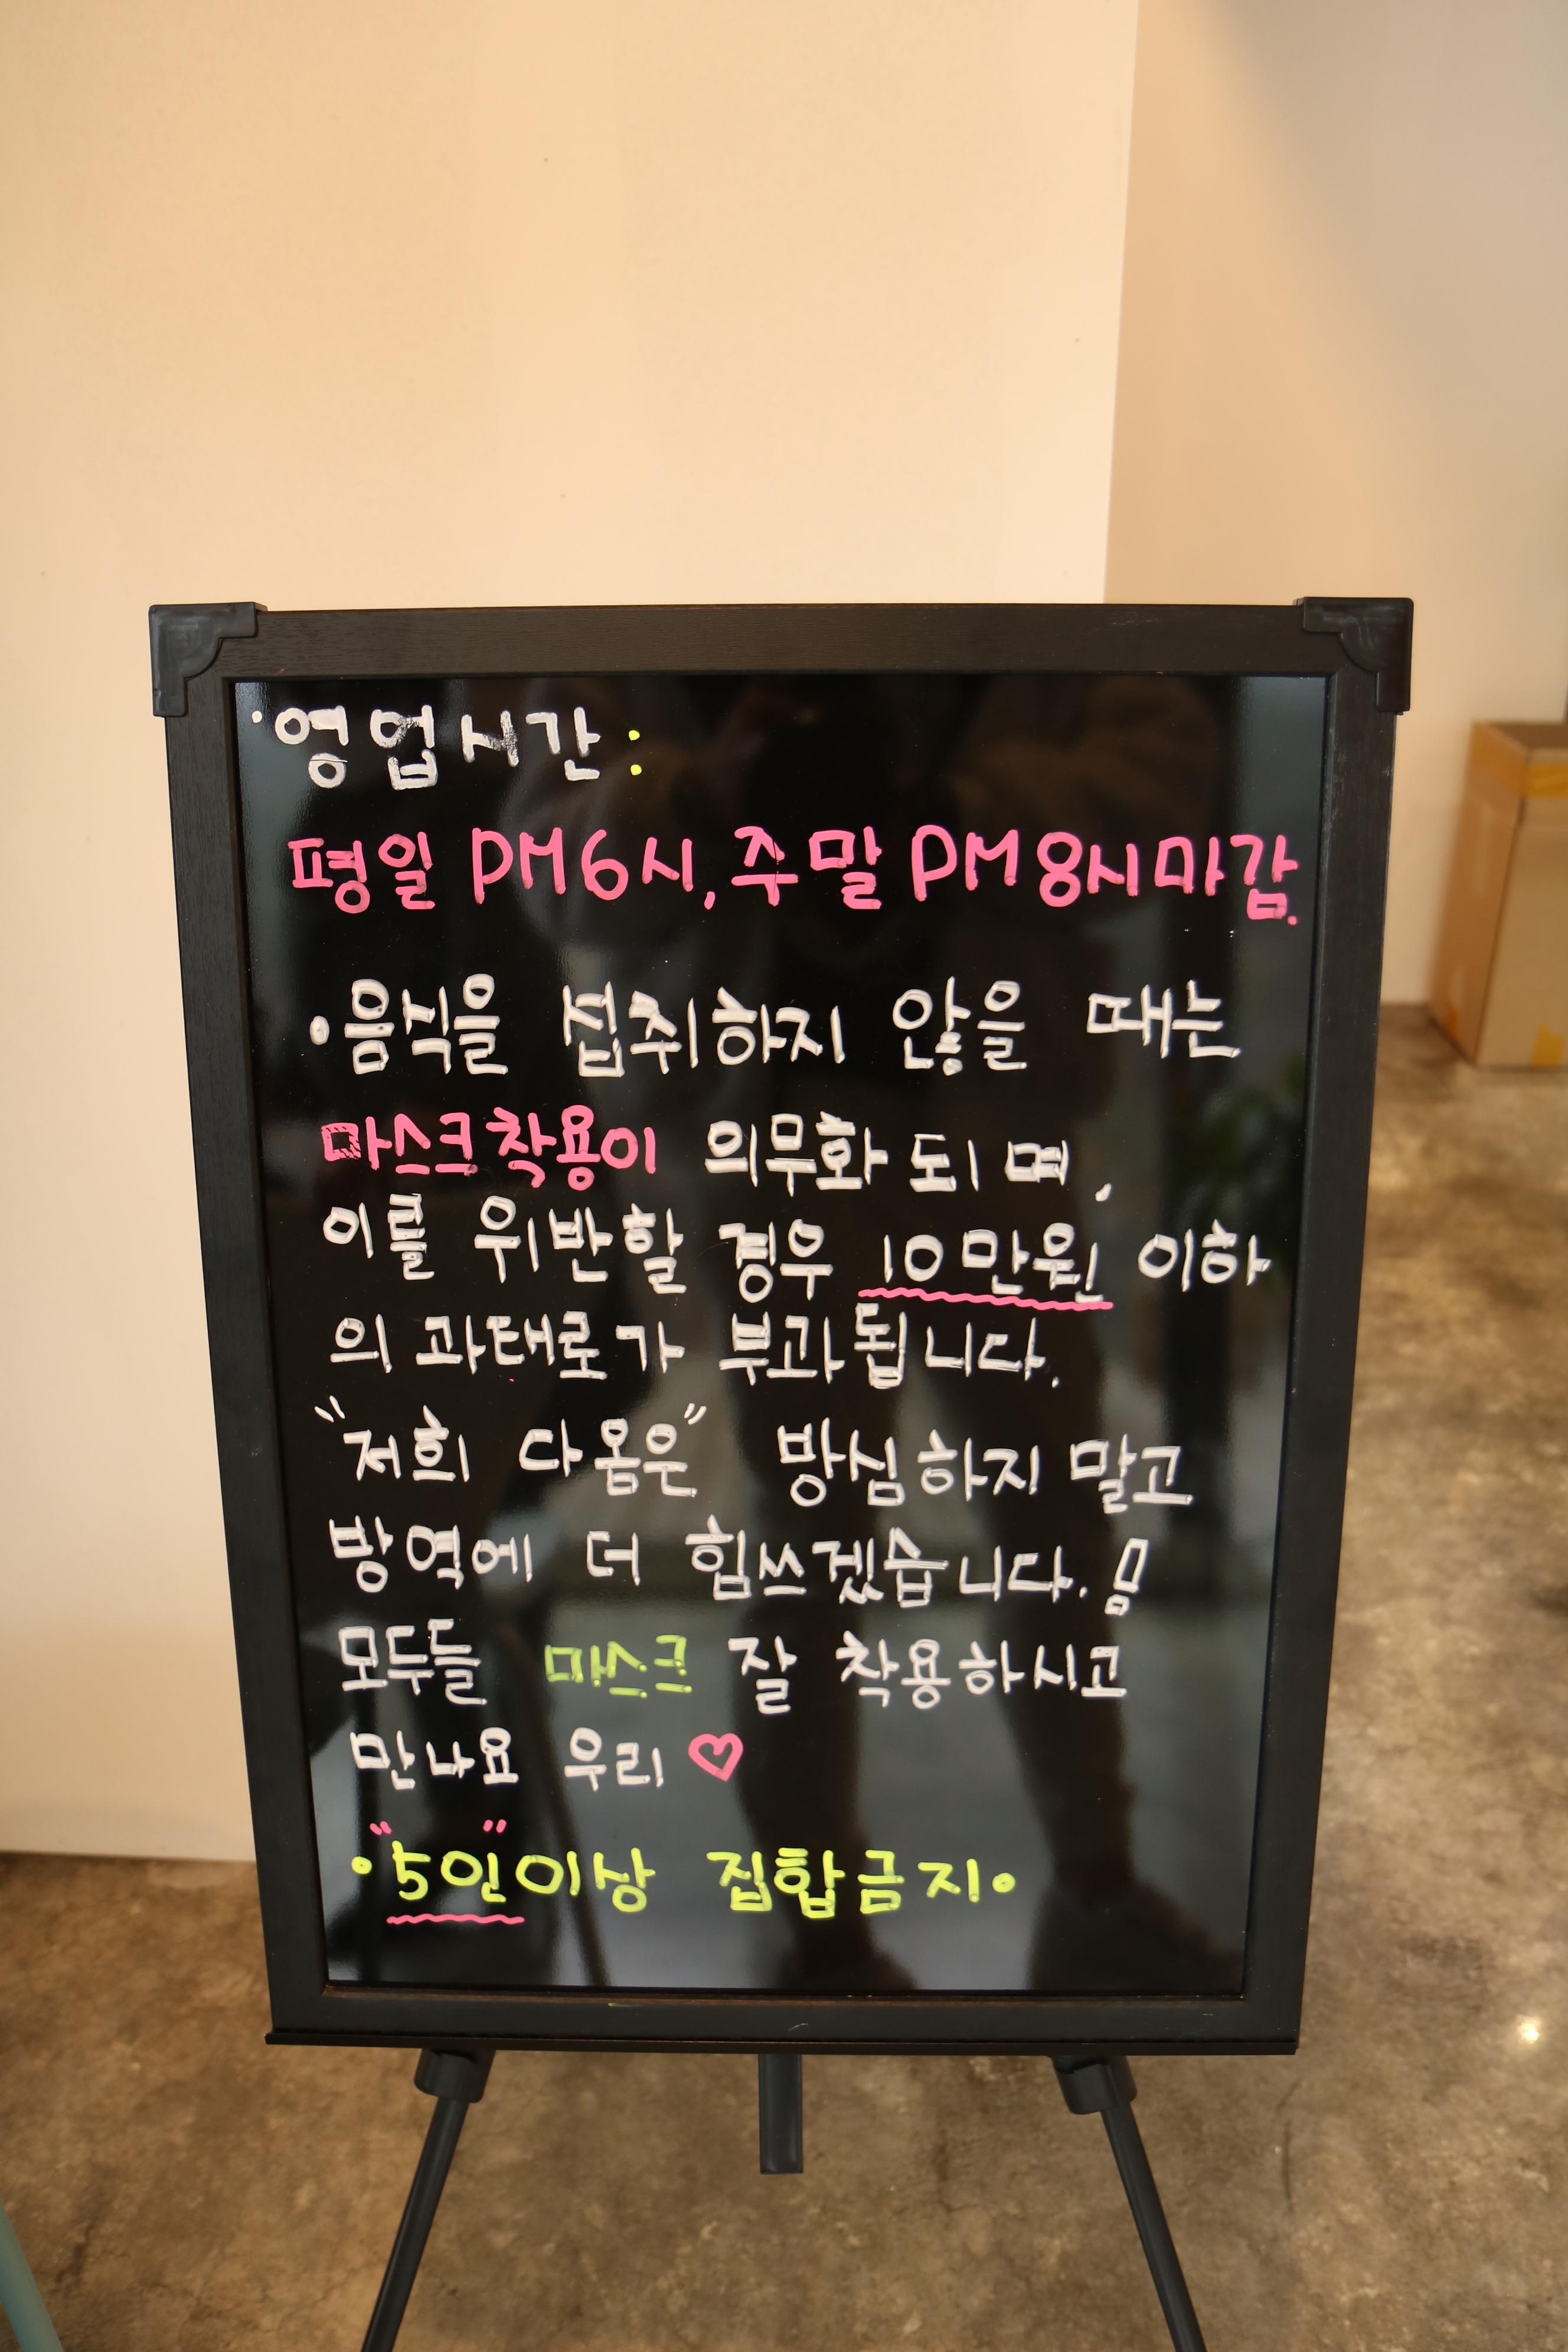 ·영업시간:
평일 PM6시, 주말 PM8시마감.
·음식을 접취하지 않을 때는
마스크착용이 의무화 되며,
이를 위반할 경우 10만원 이하
의 과태로가 부과됩니다.
"저희 다옴은" 방심하지 말고
방역에 더 힘쓰겠습니다.!
모두들 마스크 잘 착용하시고
만나요 우리♡
·"5인"이상 집합금지·